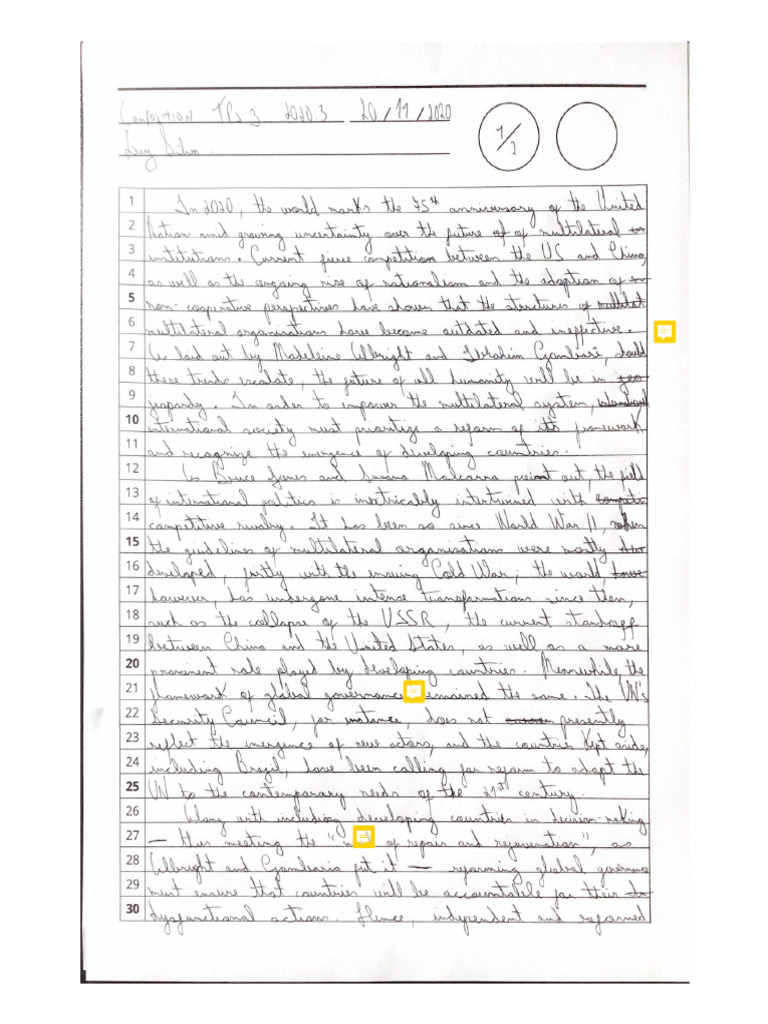 Composition TPs 3 2020.3 20/11/2020
Silva.
1/2
1 In 2020, the world marks the 75th anniversary of the United
2 Nation amid growing uncertainty over the future of of multilateral
3 institutions. Current fierce competition between the US and China,
4 as well as the ongoing rise of nationalism and the adoption of
5 non-cooperative perspectives have shown that the structures of multilat
6 multilateral organisations have become outdated and ineffective.
7 As laid out by Madeleine Albright and Ibrahim Gambari, should
8 these trends escalate, the future of all humanity will be in geo
9 jeopardy. In order to empower the multilateral system,
10 international society must prioritize a reform of its framework
11 and recognize the emergence of developing countries.
12 As Bruce Jones and Susana Malcorra point out, the field
13 of international politics is inextricably intertwined with
14 competitive rivalry. It has been so since World War II, when
15 the guidelines of multilateral organisations were mostly
16 developed, firstly with the ensuing Cold War; the world, have
17 however, has undergone intense transformations since then,
18 such as the collapse of the USSR, the current standoff
19 between China and the United States, as well as a more
20 prominent role played by developing countries. Meanwhile the
21 framework of global governance remained the same. The UN's
22 Security Council, for instance, does not presently
23 reflect the emergence of new actors, and the countries kept aside,
24 including Brazil, have been calling for reform to adapt the
25 UN to the contemporary needs of the 21st century.
26 Along with including developing countries in decision-making
27 — thus meeting the " of repair and rejuvenation", as
28 Albright and Gambaria put it — reforming global governance
29 must ensure that countries will be accountable for their
30 dysfunctional actions. Hence, independent and reformed